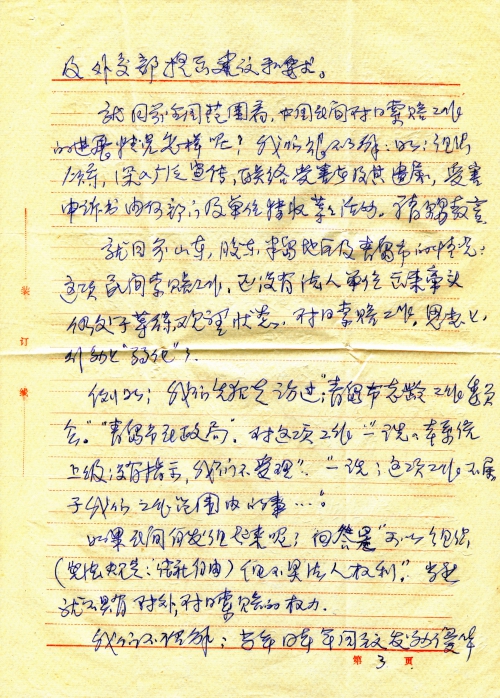 及外交部提出建议和要求。
就目前全国范围看，中国民间对日索赔工作
的进展情况怎样呢？我们很不了解：如：组织
体系，深入广泛宣传，联络受害者及其遗属，受害
申诉书由何部门及单位接收等等活动。
就目前山东，胶东半岛地区及青岛市的情况：
这项民间索赔工作，还没有法人单位出来牵头
仍处于等待观望状态，对日索赔工作，思想上
行动上“弱化”了。
例如：我们先后走访过：“青岛市老龄工作委员
会”“青岛市民政局”。对这项工作“一说：本系统
上级没有指示，我们不受理”、“一说：这项工作不属
于我们工作范围内的事…”。
如果民间自发组起来呢？回答是“可以组织
（宪法规定：结社自由）但不具法人权利”，
就不具有对外，对日索赔的权力。
我们不理解：当年日本军国主义发动侵华
第 3 页
装
订
线